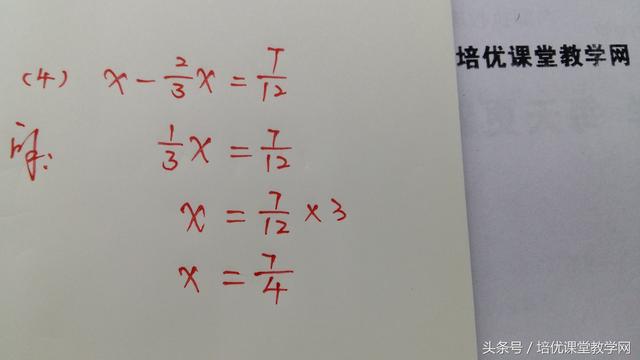 (4) x - 2/3 x = 7/12
解:
1/3 x = 7/12
x = 7/12 × 3
x = 7/4
培优课堂教学网
头条号 / 培优课堂教学网